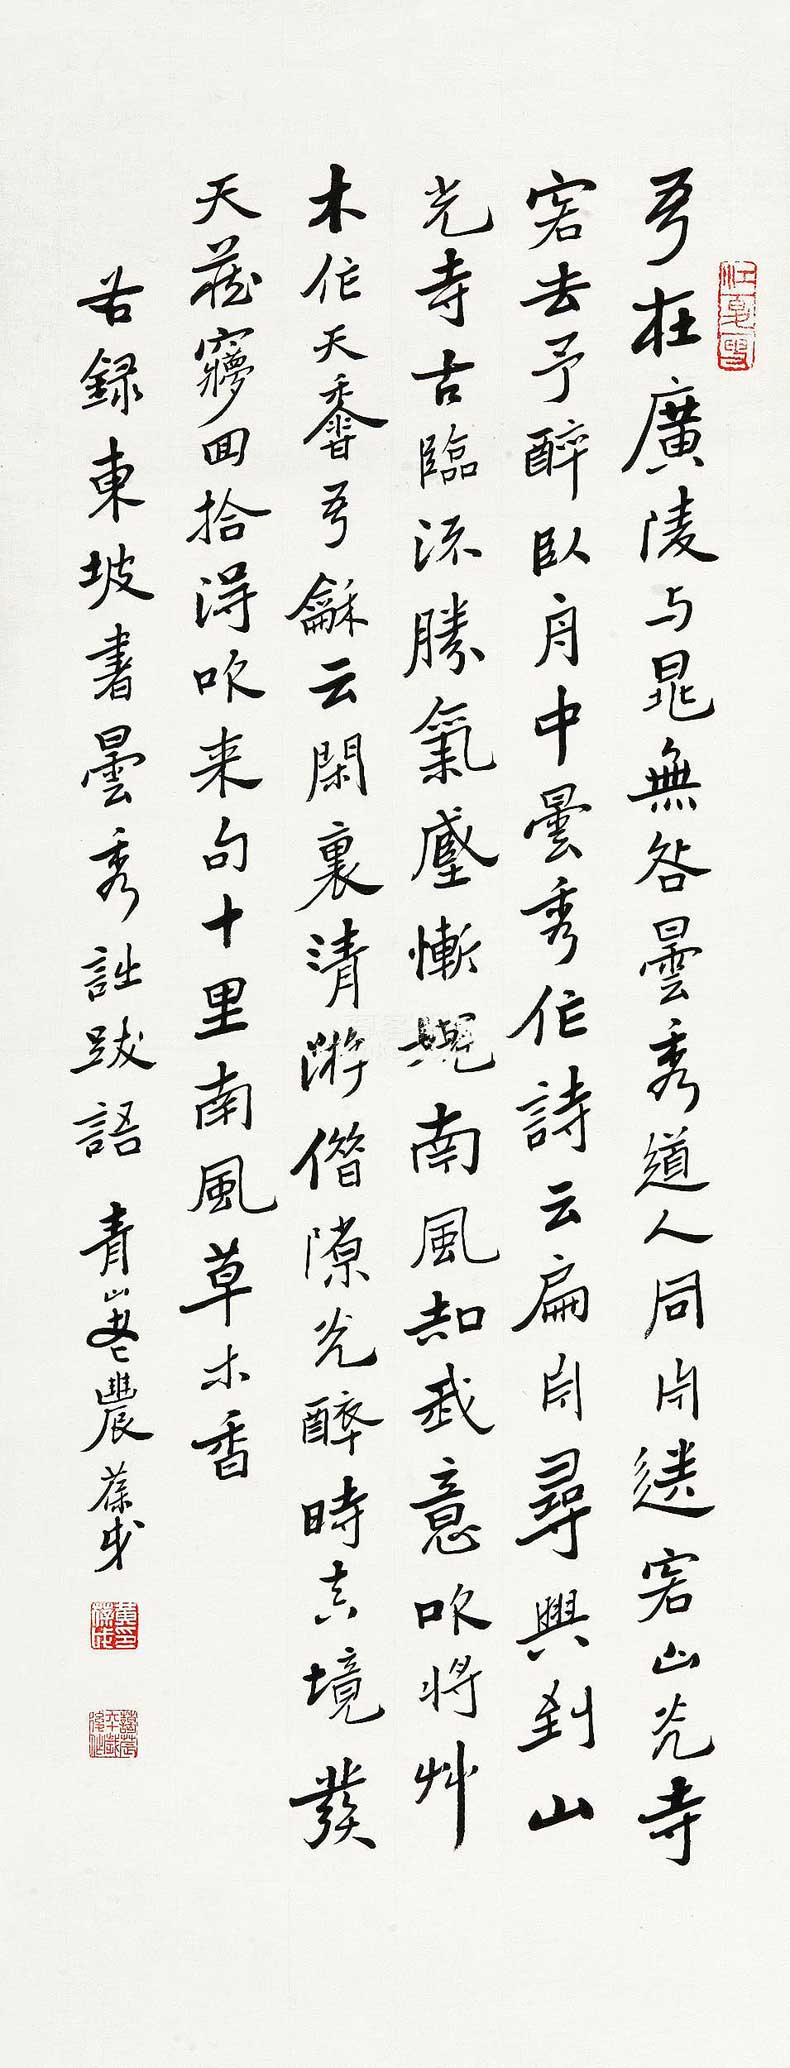 吾在廣陵与晁無咎曇秀道人同舟送客山光寺
客去予醉臥舟中曇秀作詩云扁舟尋興到山
光寺古臨流勝氣藏慚愧南風知我意吹將艸
木作天香吾龢云閑裏清游借隙光醉時真境發
天藏夢回拾得吹来句十里南風草木香
右錄東坡書曇秀詩跋語 青山老農葆戉
黃印葆戉